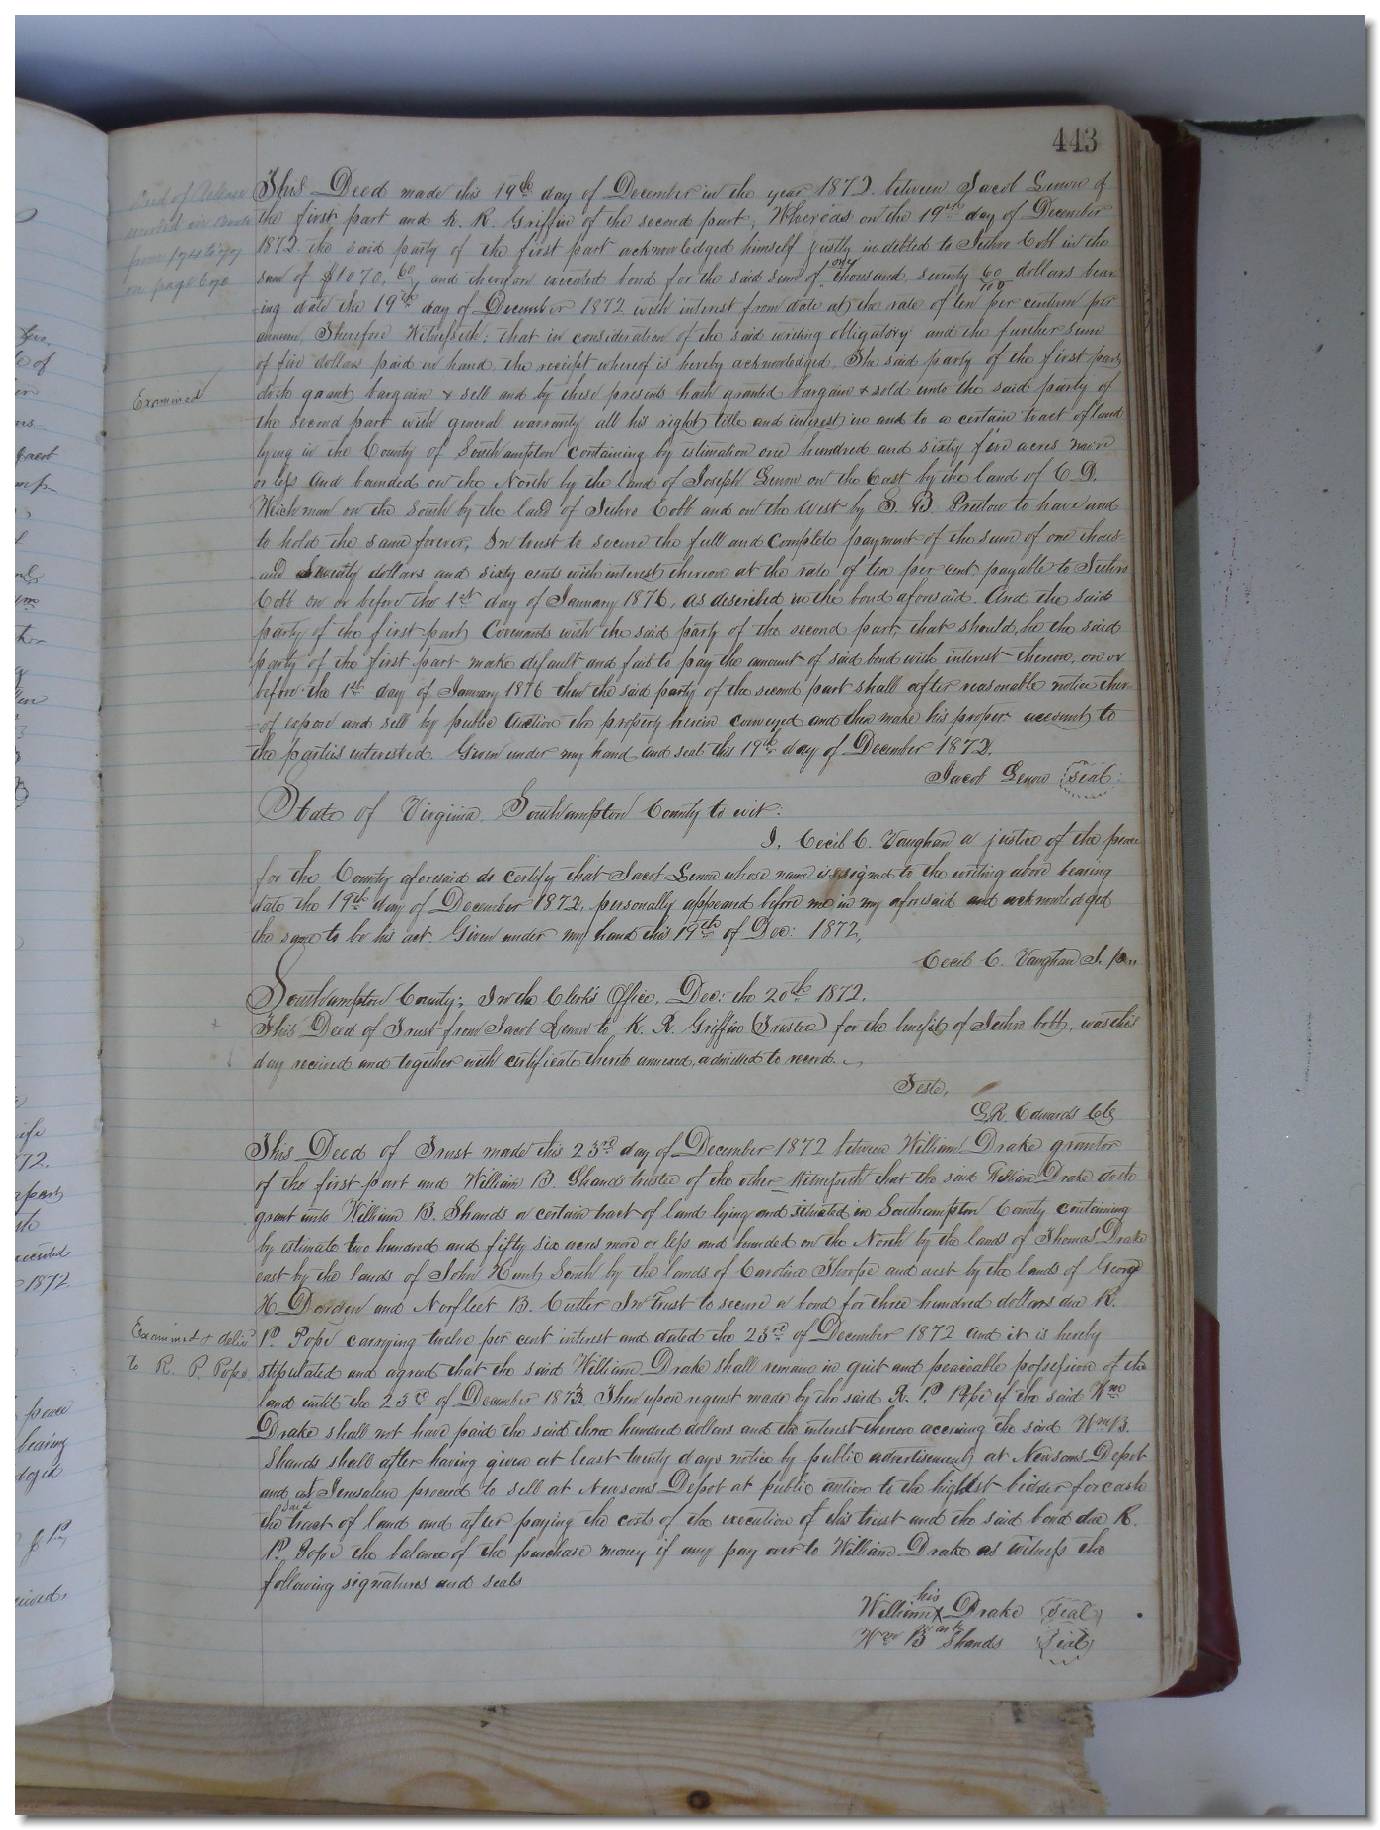 443
This Deed made this 19th day of December in the year 1872. between Jacob Lenow of
the first part and K. R. Griffin of the second part, Whereas on the 19th day of December
1872 the said party of the first part acknowledged himself justly indebted to Jethro Cobb in the
sum of $1070. 60 and thereon executed bond for the said sum of one thousand seventy 60/100 dollars bear
ing date the 19th day of December 1872 with interest from date at the rate of ten per centum per
annum, Therefore Witnesseth: that in consideration of the said writing obligatory and the further sum
of five dollars paid in hand the receipt whereof is hereby acknowledged. The said party of the first part
doth grant bargain & sell and by these presents hath granted bargain & sold unto the said party of
the second part with general warranty all his right title and interest in and to a certain tract of land
lying in the County of Southampton containing by estimation one hundred and sixty five acres more
or less and bounded on the North by the land of Joseph Lenow on the East by the land of E D.
Weichman on the South by the land of Jethro Cobb and on the West by S. B. Pretlow to have and
to hold the same forever, In trust to secure the full and complete payment of the sum of one thous-
and Seventy dollars and sixty cents with interest thereon at the rate of ten per cent payable to Jethro
Cobb on or before the 1st day of January 1876, as described in the bond aforesaid. And the said
party of the first part Covenants with the said party of the second part, that should, he the said
party of the first part make default and fail to pay the amount of said bond with interest thereon, on or
before the 1st day of January 1876 then the said party of the second part shall after reasonable notice ther-
-of expose and sell by public Auction the property herein conveyed and then make his proper account to
the parties interested. Given under my hand and seal this 19th day of December 1872.
Jacob Lenow Seal
State of Virginia. Southampton County to wit:
I, Cecil C. Vaughan a justice of the peace
for the County aforesaid do certify that Jacob Lenow whose name is signed to the writing above bearing
date the 19th day of December 1872, personally appeared before me in my aforesaid and acknowledged
the same to be his act. Given under my hand this 19th of Dec: 1872,
Cecil C. Vaughan J. P.
Southampton County; In the Clerk's Office, Dec: the 20th 1872.
This Deed of Trust from Jacob Lenow to K. R. Griffin (Trustee) for the benefit of Jethro Cobb, was this
day received and together with certificate thereto annexed, admitted to record.
Teste,
L R. Edwards Clk
This Deed of Trust made this 23rd day of December 1872 between William Drake grantor
of the first part and William B. Shands trustee of the other Witnesseth that the said William Drake doth
grant unto William B. Shands a certain tract of land lying and situated in Southampton County containing
by estimate two hundred and fifty six acres more or less and bounded on the North by the lands of Thomas Drake
east by the lands of John Hunt, South by the lands of Caroline Thorpe and west by the lands of George
H Darden and Norfleet B. Cutler In Trust to secure a bond for three hundred dollars due R.
P. Pope carrying twelve per cent interest and dated the 23rd of December 1872 and it is hereby
stipulated and agreed that the said William Drake shall remain in quiet and peaceable possession of the
land until the 23rd of December 1873. Then upon request made by the said R. P. Pope if the said Wm
Drake shall not have paid the said three hundred dollars and the interest thereon accruing the said Wm B.
Shands shall after having given at least twenty days notice by public advertisement at Newsoms Depot
and at Jerusalem proceed to sell at Newsoms Depot at public auction to the highest bidder for cash
the said tract of land and after paying the costs of the execution of this trust and the said bond due R.
P. Pope the balance of the purchase money if any pay over to William Drake as witness the
following signatures and seals
his
William X Drake Seal
mark
Wm B Shands Seal
Deed of Release
on page 670
Examined
Examined & deliv
to R. P. Pope